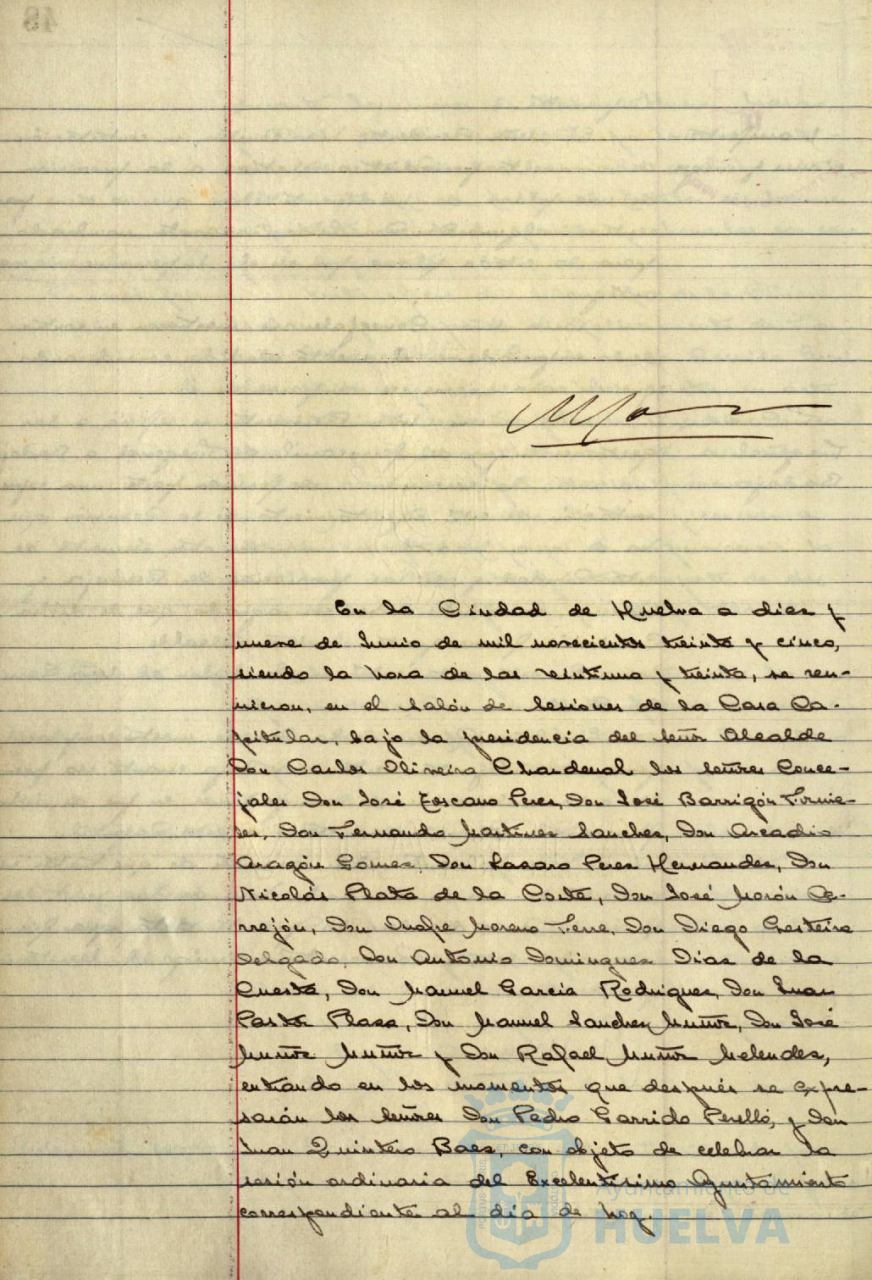 En la Ciudad de Huelva a dies y
nueve de Junio de mil novecientos treinta y cinco,
siendo la hora de las veintiuna y treinta, se reu-
nieron, en el salón de Sesiones de la Casa Ca-
pitular, bajo la presidencia del Señor Alcalde
Don Carlos Oliveira Chardenal los Señores Conce-
jales Don José Toscano Peres, Don José Barrigón Fornie-
les, Don Fernando Martines Sanches, Don Arcadio
Aragón Gomes, Don Lasaro Peres Hernandes, Don
Nicolás Plata de la Corte, Don José Morón Ce-
rrejón, Don Onofre Moreno Ferre, Don Diego Cresteira
Delgado, Don Antonio Domingues Dias de la
Cuesta, Don Manuel Garcia Rodrigues, Don Juan
Pastor Plasa, Don Manuel Sanches Muñoz, Don José
Muñoz Muñoz y Don Rafael Muñoz Melendes,
entrando en los momentos que después se expre-
sarán los Señores Don Pedro Garrido Perelló, y Don
Juan Quintero Baes, con objeto de celebrar la
sesión ordinaria del Excelentísimo Ayuntamiento
correspondiente al día de hoy.
Ayuntamiento de
HUELVA